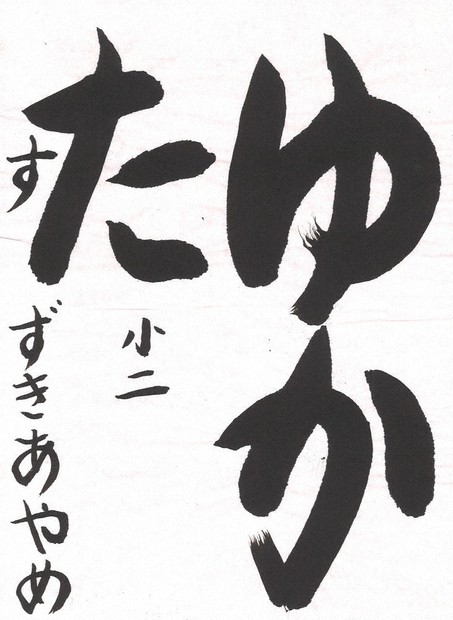 ゆか
た
小二
すずきあやめ